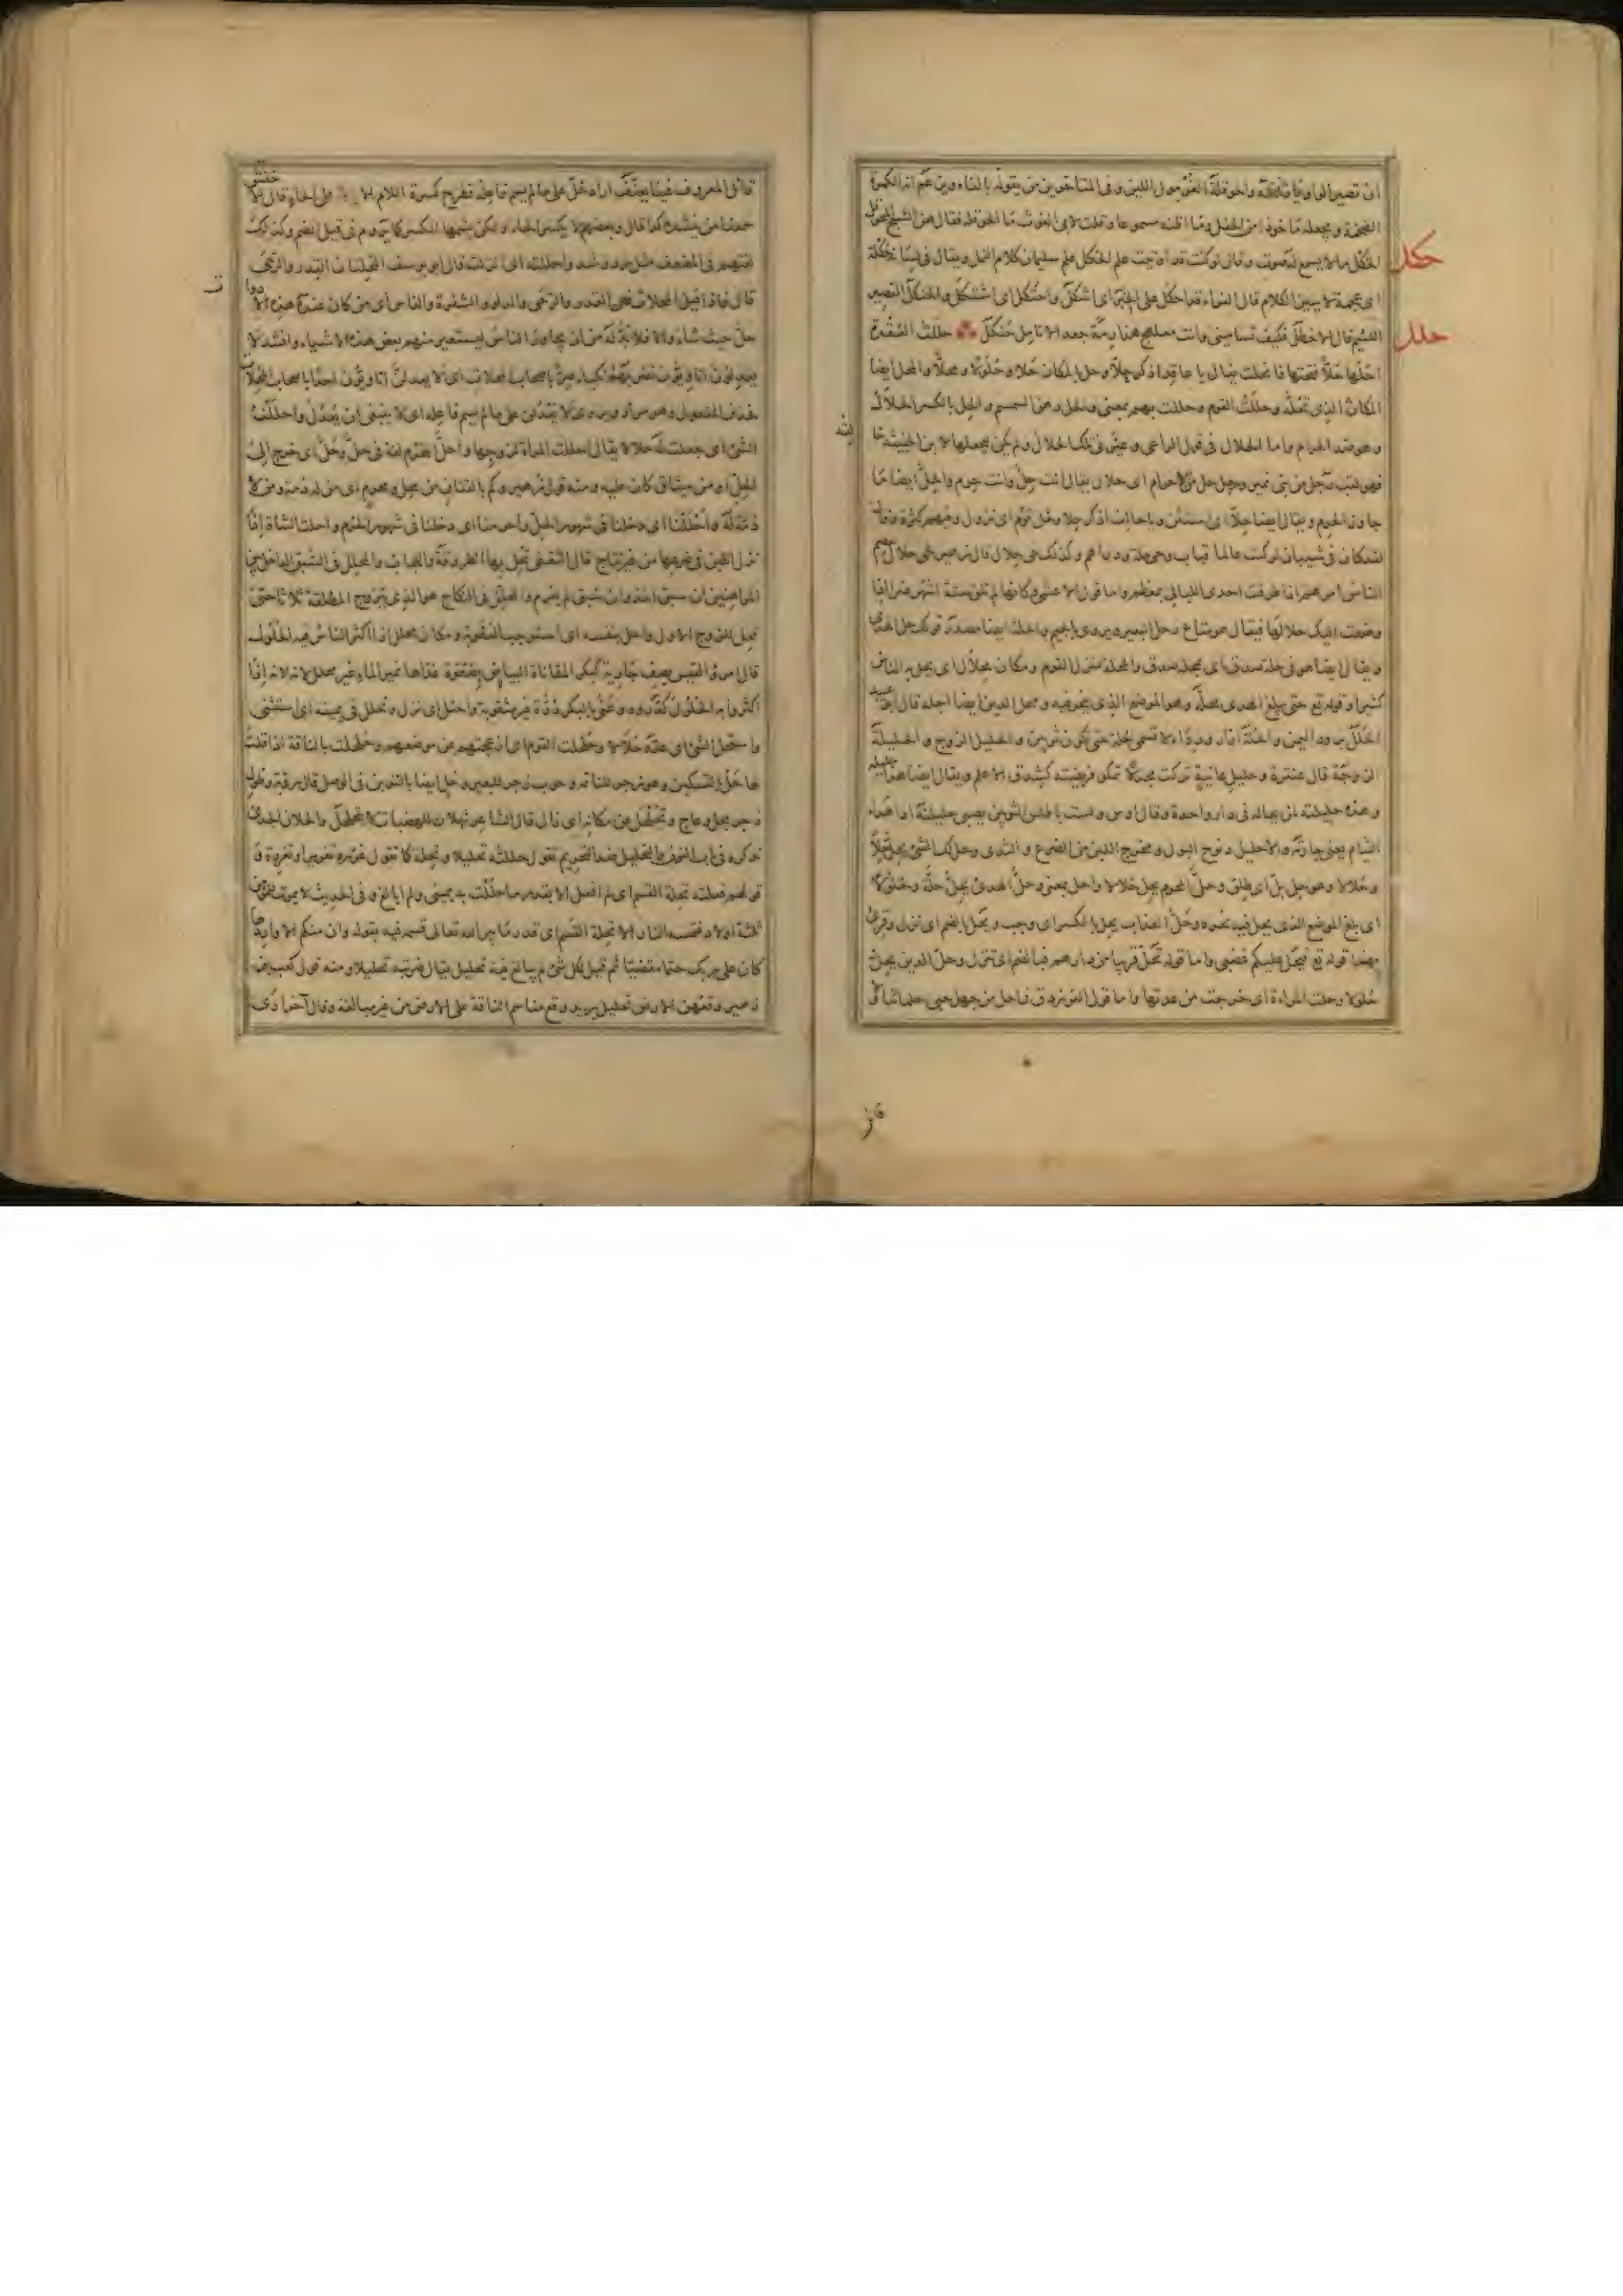 حكل
الحكل ما لا يسمع له صوت وقال لو كنت قد اوتيت علم الحكل علم سليمان كلام النمل ويقال في لسانه حكلة
اى عجمة لا يبين الكلام قال الفراء قد احكل على الخبر اى اشكل واحتكل اى اشتكل والحنكل القصير
حلل
اللئيم قال الاخطل فكيف تساميني وانت معلهج هذارمة جعد الانامل حنكل حللت العقدة
احلها حلا فتحتها فانحلت يقال يا عاقد اذكر حلا وحل بالمكان حلا وحلولا ومحلا والمحل ايضا
المكان الذى تحله وحللت القوم وحللت بهم بمعنى والحل دهن السمسم والحل بالكسر الحلال
وهو ضد الحرام واما الحلال فى قول الراعى وعيرنى تلك الحلال ولم يكن ليجعلها لابن الخبيثة خا
فهو لقب رجل من بنى نمير ورجل حل من الاحرام اى حلال يقال انت حل وانت حرم والحل ايضا ما
جاوز الحرم ويقال ايضا حلا اى استثن ويا حالف اذكر حلا وقوم حلة اى نزول وفيهم كثرة
لقد كان فى شيبان لو كنت عالما قباب وحى حلة ودراهم وكذلك حى حلال قال زهير لحى حلال يعصم
الناس امرهم اذا طرقت احدى الليالى بمعظم واما قول الاعشى وكانها لم تلق ستة اشهر ضرا اذا
وضعت اليك حلالها فيقال هو متاع رحل البعير ويروى بالجيم والحلة ايضا مصدر قولك حل الهدى
ويقال ايضا هو فى حلة صدق اى بمحلة صدق والمحلة منزل القوم ومكان محلال اى يحل به الناس
كثيرا وقوله تع حتى يبلغ الهدى محله وهو الموضع الذى ينحر فيه ومحل الدين ايضا اجله قال ابو عبيد
الحلل برود اليمن والحلة ازار ورداء لا تسمى حلة حتى تكون ثوبين والحليل الزوج والحليلة
الزوجة قال عنترة وحليل غانية تركت مجدلا تمكو فريصته كشدق الاعلم ويقال ايضا هذا حليله
وهذه حليلته لمن يحاله فى دار واحدة وقال اوس ولست باطلس الثوبين يصبى حليلته اذا هدا
النيام يعنى جارته والاحليل مخرج البول ومخرج اللبن من الضرع والثدى وحل لك الشئ يحل حلا
وحلالا وهو حل بل اى طلق وحل المحرم يحل حلالا واحل بمعنى وحل الهدى يحل حلة وحلولا
اى بلغ الموضع الذى يحل فيه نحره وحل العذاب يحل بالكسر اى وجب ويحل بالضم اى نزل وقرئ
بهما قوله تع فيحل عليكم غضبى واما قوله تحل قريبا من دارهم فبالضم اى تنزل وحل الدين يحل
حلولا وحلت المراة اى خرجت من عدتها واما قول الفرزدق فما حل من جهل حبى حلمائنا
قائل المعروف فينا يعنف اراد حل على ما لم يسم فاعله فطرح كسرة اللام على الحاء قال الاخفش
سمعنا من ينشده كذا قال وبعضهم لا يكسر الحاء ولكن يشمها الكسر كما يروم فى قيل الضم وكذلك
لغتهم فى المضعف مثل رد وشد واحللته اى انزلته قال ابو يوسف المحلتان القدر والرحى
قال فاذا قيل المحلات فهى القدر والرحى والدلو والشفرة والفاس اى من كان عنده هذه الادوات
حل حيث شاء والا فلا بد له من ان يجاور الناس ليستعير منهم بعض هذه الاشياء وانشد لا
يعدلن اتاويون تضربهم نكباء صر باصحاب المحلات اى لا يعدلن اتاويون احدا باصحاب المحلات
فحذف المفعول وهو مراد ويروى لا يعدلن على ما لم يسم فاعله اى لا ينبغى ان يعدل واحللت له
الشئ اى جعلته له حلالا يقال احللت المراة لزوجها واحل المحرم لغة فى حل وحل اى خرج الى
الحل او من ميثاق كان عليه ومنه قول زهير وكم بالقنان من محل ومحرم اى من له ذمة ومن لا
ذمة له واحللنا اى دخلنا فى شهور الحل واحرمنا اى دخلنا فى شهور الحرم واحلت الشاة اذا
نزل اللبن فى ضرعها من غير نتاج قال الثقفى تحل بها الطروقة واللجاب والمحلل فى السبق الداخل بين
المراهنين ان سبق اخذ وان سبق لم يغرم والمحلل فى النكاح هو الذى يتزوج المطلقة ثلاثا حتى
تحل للزوج الاول واحل بنفسه اى استوجب العقوبة ومكان محلل اذا اكثر الناس به الحلول
قال امرؤ القيس يصف جارية كبكر المقاناة البياض بصفرة غذاها نمير الماء غير محلل لانه اذا
اكثروا به الحلول كدروه وعنى بالبكر درة غير مثقوبة واحتل اى نزل وتحلل فى يمينه اى استثنى
واستحل الشئ اى عده حلالا وحلحلت القوم اى ازعجتهم عن موضعهم وحلحلت بالناقة اذا قلت
لها حل بالتسكين وهو زجر للناقة وحوب زجر للبعير وحل ايضا بالتنوين فى الوصل قال رؤبة وطول
زجر بحل وعاج وتحلحل عن مكانه اى زال قال الشاعر ثهلان ذو الهضبات لا يتحلحل والحلان الجدى
نذكره فى باب النون والتحليل ضد التحريم تقول حللته تحليلا وتحلة كما تقول غرر تغريرا وتغرة و
قولهم فعلته تحلة القسم اى لم افعل الا بقدر ما حللت به يمينى ولم ابالغ وفى الحديث لا يموت للمؤمن
ثلثة اولاد فتمسه النار الا تحلة القسم اى قدر ما يبر الله تعالى قسمه فيه بقوله وان منكم الا واردها
كان على ربك حتما مقضيا ثم قيل لكل شئ لم يبالغ فيه تحليل يقال ضربته تحليلا ومنه قول كعب
وقعهن الارض تحليل يريد وقع مناسم الناقة على الارض من غير مبالغة وقال آخر